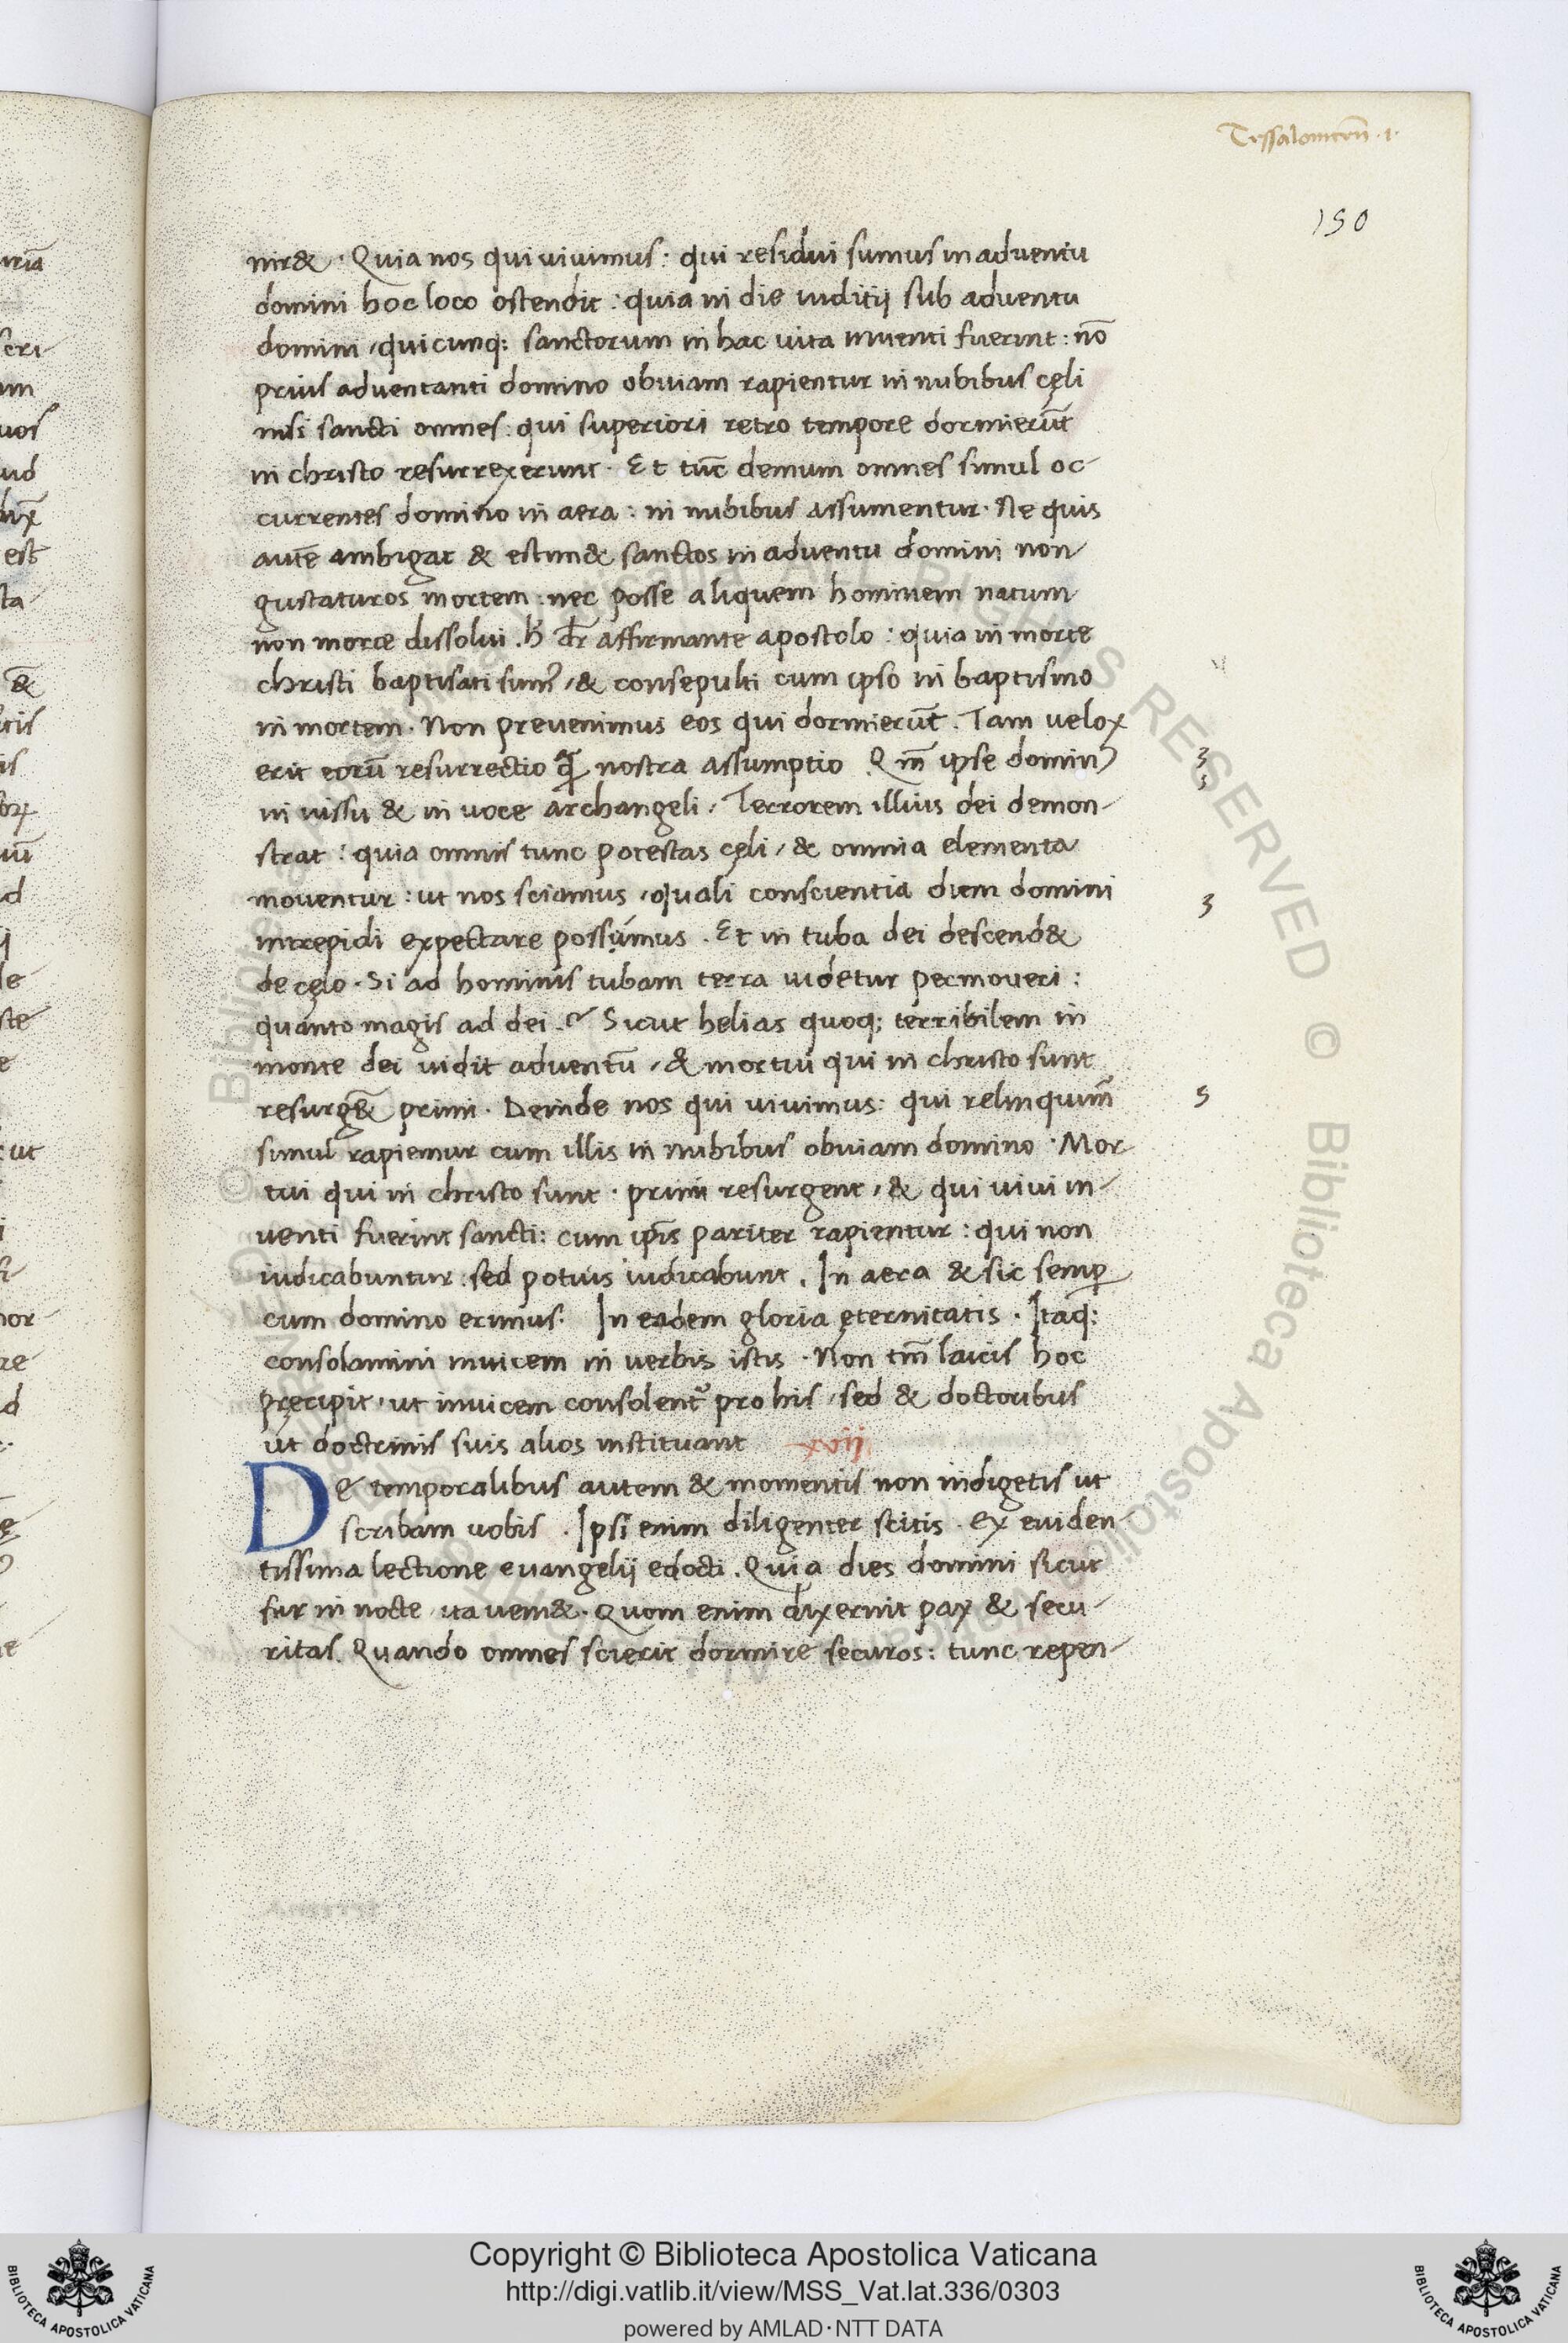 Tessalonicen̄ .1.
150
nir& . Quia nos qui vivimus : qui residui sumus in adventu
domini hoc loco ostendit : quia in die iuditij sub adventu
domini / quicunq; sanctorum in hac uita inventi fuerint : nō
prius adventanti domino obviam rapientur in nubibus cęli
nisi sancti omnes : qui superiori retro tempore dormierūt
in christo resurrexerunt . Et tūc demum omnes simul oc-
currentes domino in aera : in nubibus assumentur . Ne quis
autē ambigat & estim& sanctos in adventu domini non
gustaturos mortem : nec posse aliquem hominem natum
non morte dissolui . dr̄ affirmante apostolo : quia in morte
christi baptisati sumꝰ / & consepulti cum ipso in baptismo
in mortem . Non prevenimus eos qui dormierūt . Tam velox
erit eorū resurrectio nostra assumptio . Qm̄ ipse dominꝰ
in iussu & in voce archangeli / Terrorem illius dei demon-
strat : quia omnis tunc potestas cęli / & omnia elementa
moventur : ut nos sciamus / quali conscientia diem domini
intrepidi expectare possumus . Et in tuba dei descend&
de cęlo . Si ad hominis tubam terra uidetur permoveri :
quanto magis ad dei . Sicut helias quoq; terribilem in
monte dei uidit adventū / & mortui qui in christo sunt
resurgē& primi . Deinde nos qui vivimus : qui relinquim̄
simul rapiemur cum illis in nubibus obviam domino . Mor
tui qui in christo sunt . primi resurgent / & qui vivi in-
venti fuerint sancti : cum ip̄is pariter rapientur : qui non
iudicabuntur : sed potius iudicabunt . In aera & sic semꝑ
cum domino erimus . In eadem gloria ęternitatis . Itaq:
consolamini inuicem in verbis istis . Non tm̄ laicis hoc
pręcipit / ut inuicem consolent᷑ pro his / sed & doctoribus
ut doctrinis suis alios instituant xvij
De temporalibus autem & momentis non indigetis ut
scribam uobis . Ipsi enim diligenter scitis . ex eviden-
tissima lectione evangelij edocti . Quia dies domini sicut
fur in nocte / ita veni& . Quom enim dixerint pax & secu-
ritas . Quando omnes scierit dormire securos : tunc repen-
Copyright © Biblioteca Apostolica Vaticana
http://digi.vatlib.it/view/MSS_Vat.lat.336/0303
powered by AMLAD·NTT DATA
BIBLIOTECA APOSTOLICA VATICANA
BIBLIOTECA APOSTOLICA VATICANA